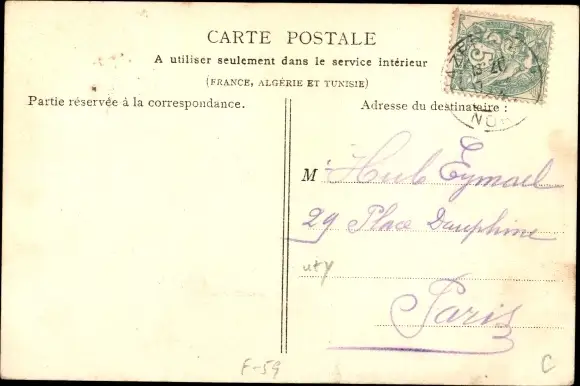 CARTE POSTALE
A utiliser seulement dans le service intérieur
(FRANCE, ALGÉRIE ET TUNISIE)
Partie réservée à la correspondance.
Adresse du destinataire :
M Hub Eymael
29 Place Dauphine
Paris
F-59
C